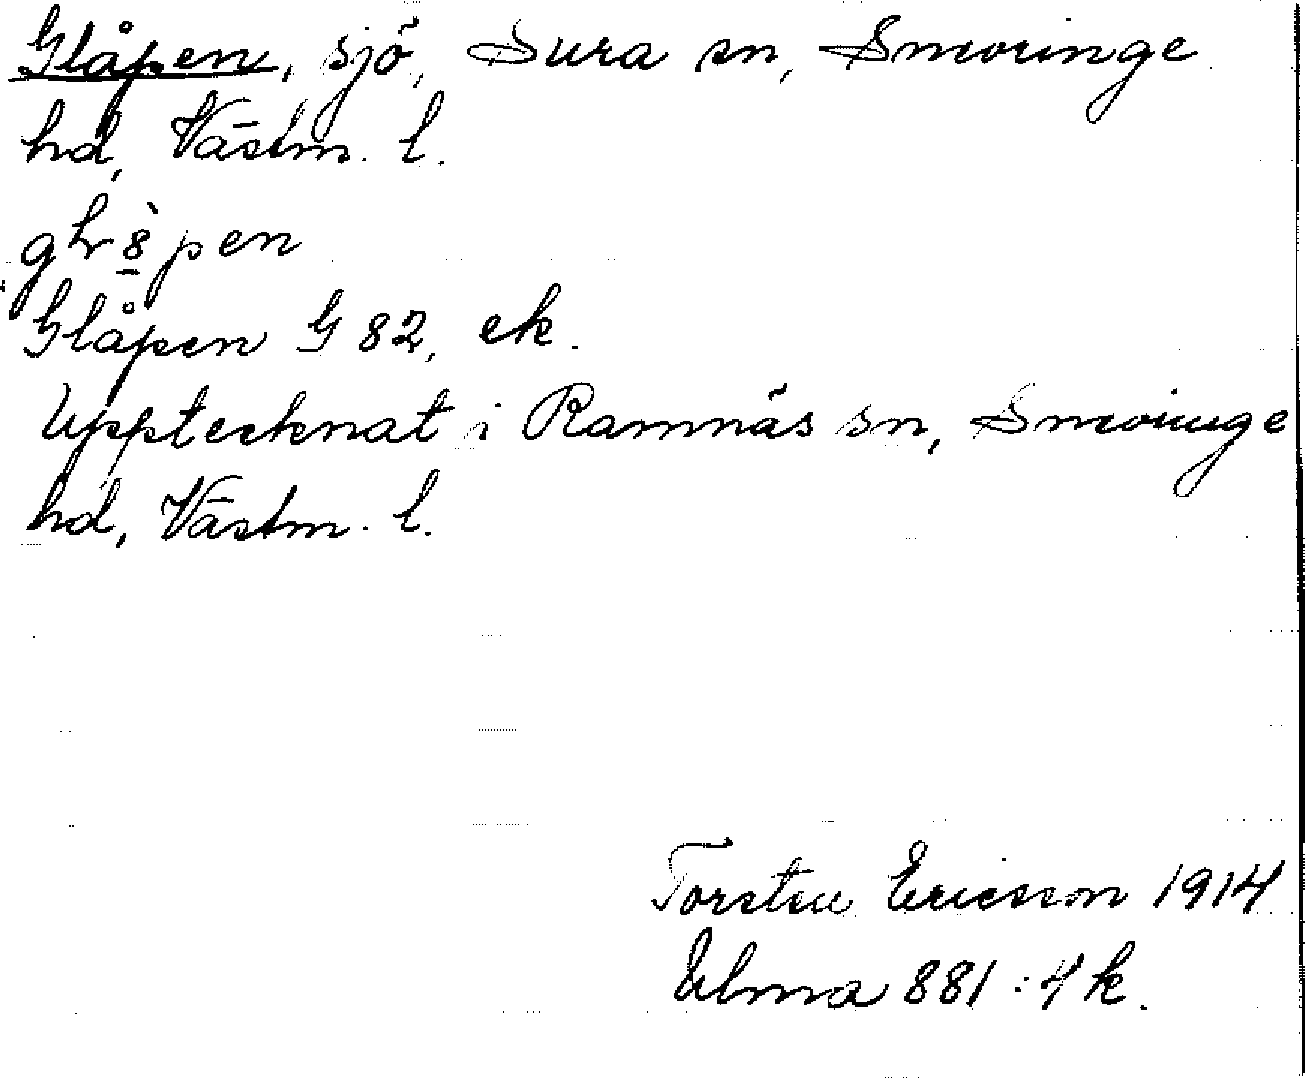 Glåpen, sjö, Sura sn, Snevringe
hd, Västm. l.
Glåpen G 82, ek.
Upptecknat i Ramnäs sn, Snevringe
hd, Västm. l.
Torsten Ericsson 1914
Elma 881:4 k.